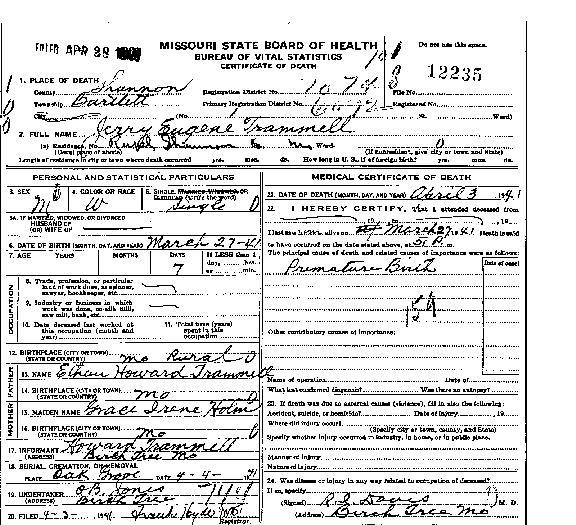 FILED APR 28 1941
MISSOURI STATE BOARD OF HEALTH
BUREAU OF VITAL STATISTICS
CERTIFICATE OF DEATH
Do not use this space.
12235
1. PLACE OF DEATH
County Shannon
Registration District No. 1074
File No.
Township Bartlett
Primary Registration District No.
Registered No.
(No. St. Ward)
2. FULL NAME Jerry Eugene Trammell
(a) Residence, No. Rural Shannon Co. Mo. Ward
(Usual place of abode)
(If nonresident, give city or town and State)
Length of residence in city or town where death occurred yrs. mos. ds. How long in U. S., if of foreign birth? yrs. mos. ds.
PERSONAL AND STATISTICAL PARTICULARS
3. SEX M
4. COLOR OR RACE W
5. SINGLE, MARRIED, WIDOWED OR DIVORCED (write the word) Single
5A. IF MARRIED, WIDOWED, OR DIVORCED
HUSBAND OF
(OR) WIFE OF
6. DATE OF BIRTH (MONTH, DAY, AND YEAR) March 27-41
7. AGE YEARS MONTHS DAYS IF LESS than 1
7
day, hrs.
or min.
OCCUPATION
8. Trade, profession, or particular kind of work done, as spinner, sawyer, bookkeeper, etc.
9. Industry or business in which work was done, as silk mill, saw mill, bank, etc.
10. Date deceased last worked at this occupation (month and year)
11. Total time (years) spent in this occupation
12. BIRTHPLACE (CITY OR TOWN) Mo Rural
(STATE OR COUNTRY)
FATHER
13. NAME Ethan Howard Trammell
14. BIRTHPLACE (CITY OR TOWN)
(STATE OR COUNTRY) Mo
MOTHER
15. MAIDEN NAME Grace Irene Holm
16. BIRTHPLACE (CITY OR TOWN)
(STATE OR COUNTRY) Mo
17. INFORMANT Howard Trammell
(ADDRESS) Birch Tree Mo
18. BURIAL, CREMATION, OR REMOVAL
PLACE Oak Grove DATE 4-4-41
19. UNDERTAKER O.B. Jones
(ADDRESS) Birch Tree
20. FILED 4-3- 1941 Frank Hyde
Registrar
MEDICAL CERTIFICATE OF DEATH
21. DATE OF DEATH (MONTH, DAY, AND YEAR) April 3 1941
22. I HEREBY CERTIFY, That I attended deceased from
I last saw h alive on March 27 1941 Death is said
to have occurred on the date stated above, at m.
The principal cause of death and related causes of importance were as follows:
Date of onset
Premature Birth
Other contributory causes of importance:
Name of operation Date of
What test confirmed diagnosis? Was there an autopsy?
23. If death was due to external causes (violence), fill in also the following:
Accident, suicide, or homicide? Date of injury 19
Where did injury occur?
(Specify city or town, county, and State)
Specify whether injury occurred in industry, in home, or in public place.
Manner of injury
Nature of injury
24. Was disease or injury in any way related to occupation of deceased?
If so, specify
(Signed) R.S. Davis M. D.
(Address) Birch Tree Mo